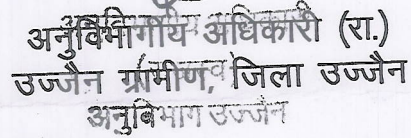 अनुविभागीय अधिकारी (रा.)
उज्जैन ग्रामीण, जिला उज्जैन
अनुविभाग उज्जैन